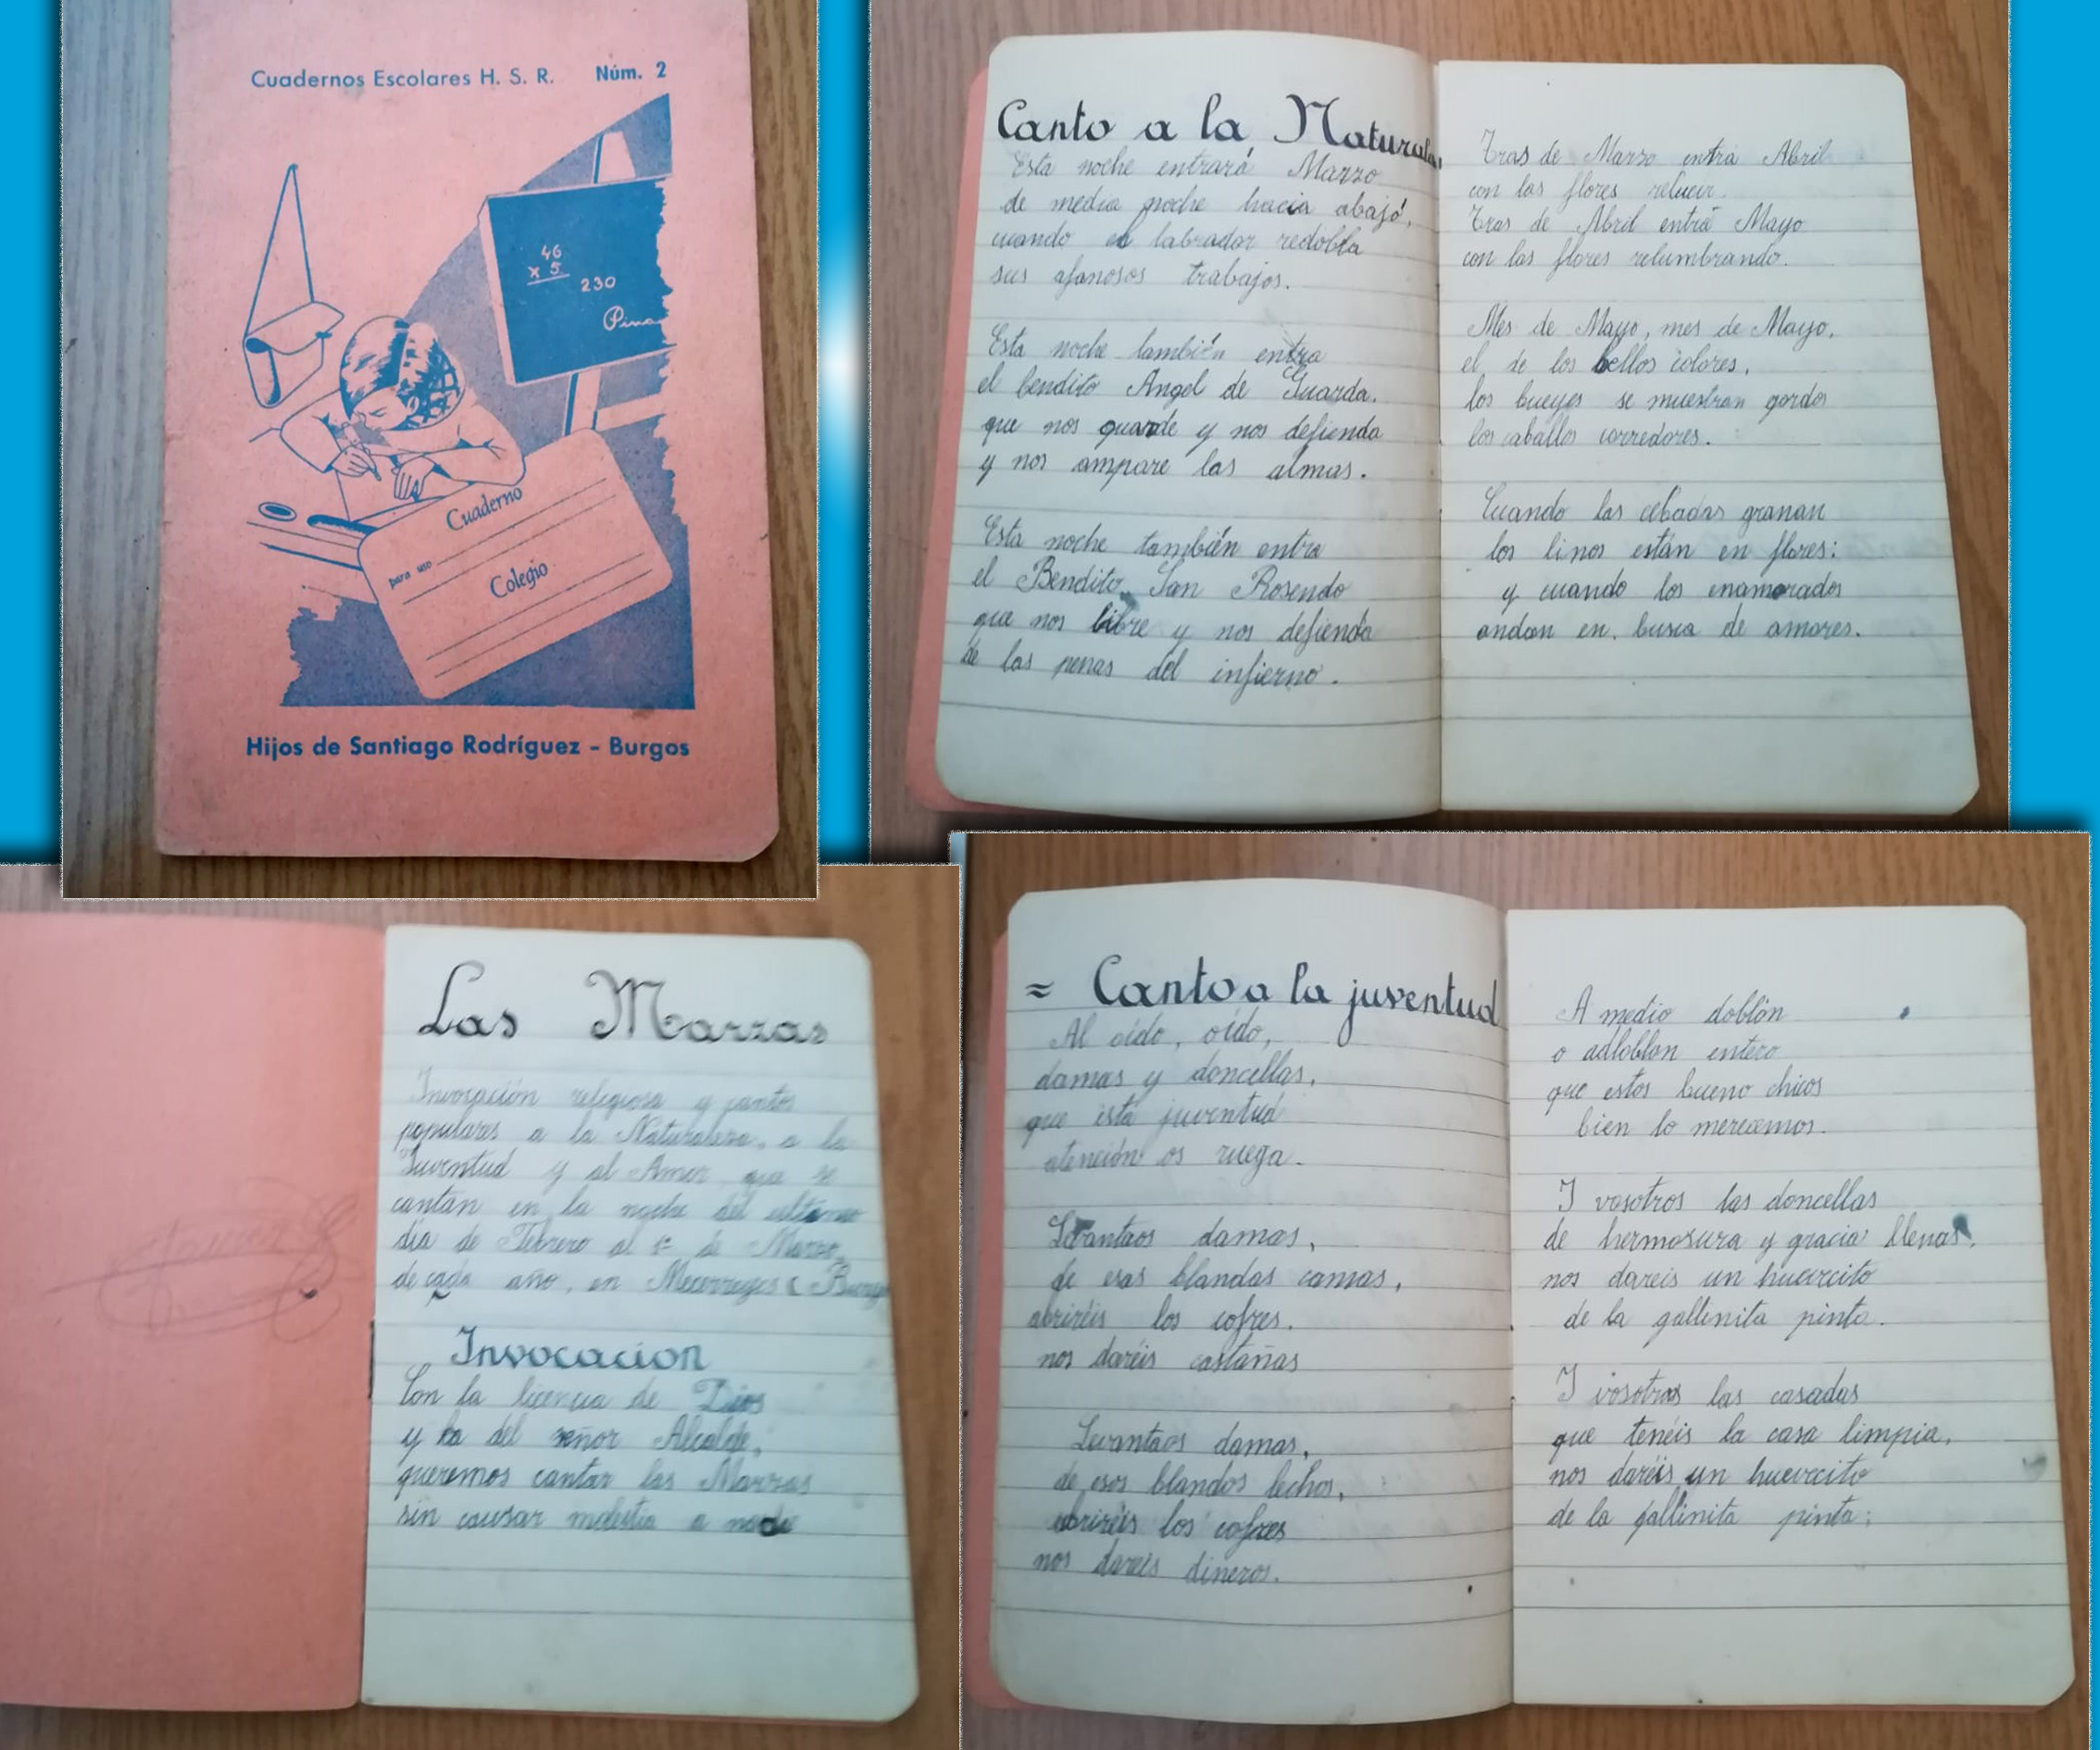 Cuadernos Escolares H. S. R. Núm. 2
46
x 5
230
Pina
Cuaderno
para uso
Colegio
Hijos de Santiago Rodríguez - Burgos
Canto a la Naturale
Esta noche entrará Marzo
de media noche hacia abajó,
cuando el labrador redobla
sus afanosos trabajos.
Esta noche también entra
el bendito Angel de Guarda.
que nos guarde y nos defienda
y nos ampare las almas.
Esta noche también entra
el Bendito San Rosendo
que nos libre y nos defienda
de las penas del infierno.
Tras de Marzo entra Abril
con las flores relucir.
Tras de Abril entra Mayo
con las flores relumbrando.
Mes de Mayo, mes de Mayo,
el de los bellos colores,
los bueyes se muestran gordos
los caballos corredores.
Cuando las cebadas granan
los linos están en flores:
y cuando los enamorados
andan en. busca de amores.
Las Marzas
Invocación religiosa y cantos
populares a la Naturaleza, a la
Juventud y al Amor que se
cantan en la noche del ultimo
día de Febrero al 1º de Marzo,
de cada año, en Mecerreyes (Burgo
Invocacion
Con la licencia de Dios
y la del señor Alcalde,
queremos cantar las Marzas
sin causar molestia a nadie
= Canto a la juventud
Al oído, oído,
damas y doncellas,
que esta juventud
atención os ruega.
Levantaos damas,
de esas blandas camas,
abriréis los cofres.
nos daréis castañas
Levantaos damas,
de esos blandos lechos,
abriréis los cofres
nos dareis dineros.
A medio doblón
o adloblon entero
que estos bueno chicos
bien lo merecemos.
I vosotros las doncellas
de hermosura y gracia llenas,
nos dareis un huevecito
de la gallinita pinta.
I vosotras las casadas
que tenéis la casa limpia,
nos daréis un huevecito
de la gallinita pinta: